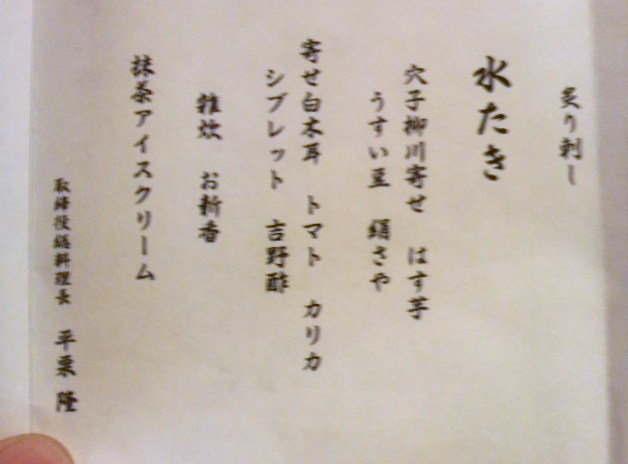 炙り刺し
水たき
穴子柳川寄せ　はす芋
うすい豆　絹さや
寄せ白木耳　トマト　カリカ
シブレット　吉野酢
雑炊　お新香
抹茶アイスクリーム
取締役総料理長　平栗　隆